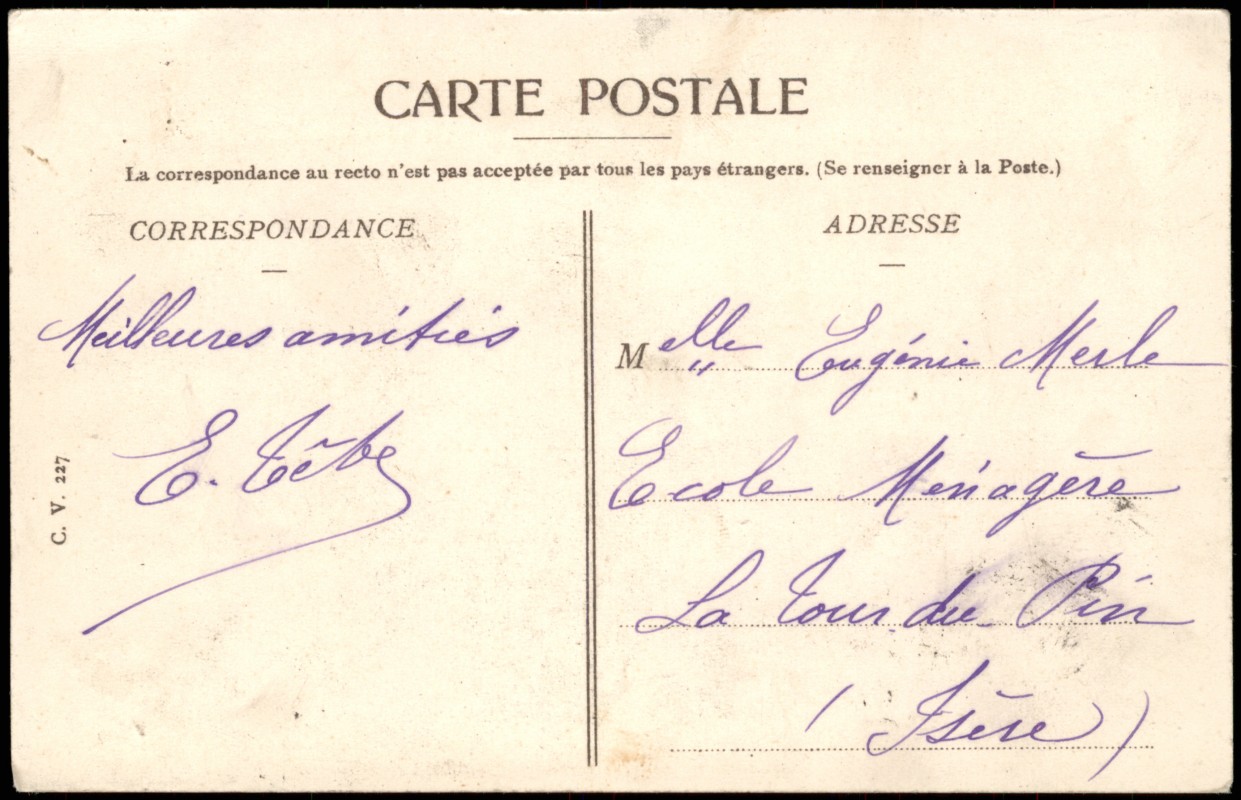 CARTE POSTALE
La correspondance au recto n'est pas acceptée par tous les pays étrangers. (Se renseigner à la Poste.)
CORRESPONDANCE
Meilleures amitiés
E. Têtu
C. V. 227
ADRESSE
Melle Eugénie Merle
Ecole Ménagère
La Tour du Pin
(Isère)